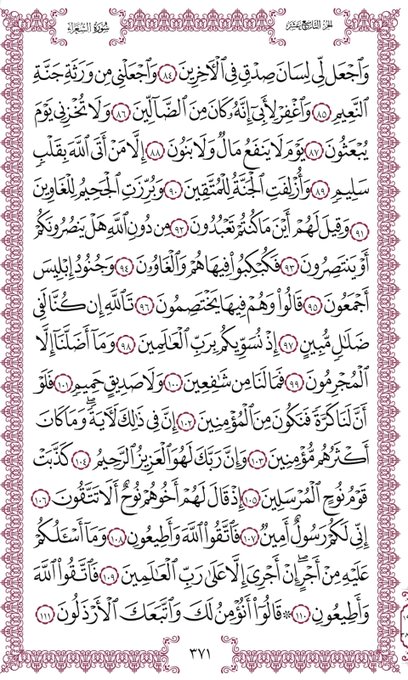 الجزء التاسع عشر سورة الشعراء
وَٱجْعَل لِّى لِسَانَ صِدْقٍ فِى ٱلْءَاخِرِينَ ٨٤ وَٱجْعَلْنِى مِن وَرَثَةِ جَنَّةِ
ٱلنَّعِيمِ ٨٥ وَٱغْفِرْ لِأَبِىٓ إِنَّهُۥ كَانَ مِنَ ٱلضَّآلِّينَ ٨٦ وَلَا تُخْزِنِى يَوْمَ
يُبْعَثُونَ ٨٧ يَوْمَ لَا يَنفَعُ مَالٌ وَلَا بَنُونَ ٨٨ إِلَّا مَنْ أَتَى ٱللَّهَ بِقَلْبٍ
سَلِيمٍ ٨٩ وَأُزْلِفَتِ ٱلْجَنَّةُ لِلْمُتَّقِينَ ٩٠ وَبُرِّزَتِ ٱلْجَحِيمُ لِلْغَاوِينَ
٩١ وَقِيلَ لَهُمْ أَيْنَ مَا كُنتُمْ تَعْبُدُونَ ٩٢ مِن دُونِ ٱللَّهِ هَلْ يَنصُرُونَكُمْ
أَوْ يَنتَصِرُونَ ٩٣ فَكُبْكِبُوا۟ فِيهَا هُمْ وَٱلْغَاوُۥنَ ٩٤ وَجُنُودُ إِبْلِيسَ
أَجْمَعُونَ ٩٥ قَالُوا۟ وَهُمْ فِيهَا يَخْتَصِمُونَ ٩٦ تَٱللَّهِ إِن كُنَّا لَفِى
ضَلَٰلٍ مُّبِينٍ ٩٧ إِذْ نُسَوِّيكُم بِرَبِّ ٱلْعَٰلَمِينَ ٩٨ وَمَآ أَضَلَّنَآ إِلَّا
ٱلْمُجْرِمُونَ ٩٩ فَمَا لَنَا مِن شَٰفِعِينَ ١٠٠ وَلَا صَدِيقٍ حَمِيمٍ ١٠١ فَلَوْ
أَنَّ لَنَا كَرَّةً فَنَكُونَ مِنَ ٱلْمُؤْمِنِينَ ١٠٢ إِنَّ فِى ذَٰلِكَ لَءَايَةً ۖ وَمَا كَانَ
أَكْثَرُهُم مُّؤْمِنِينَ ١٠٣ وَإِنَّ رَبَّكَ لَهُوَ ٱلْعَزِيزُ ٱلرَّحِيمُ ١٠٤ كَذَّبَتْ
قَوْمُ نُوحٍ ٱلْمُرْسَلِينَ ١٠٥ إِذْ قَالَ لَهُمْ أَخُوهُمْ نُوحٌ أَلَا تَتَّقُونَ ١٠٦
إِنِّى لَكُمْ رَسُولٌ أَمِينٌ ١٠٧ فَٱتَّقُوا۟ ٱللَّهَ وَأَطِيعُونِ ١٠٨ وَمَآ أَسْـَٔلُكُمْ
عَلَيْهِ مِنْ أَجْرٍ ۖ إِنْ أَجْرِىَ إِلَّا عَلَىٰ رَبِّ ٱلْعَٰلَمِينَ ١٠٩ فَٱتَّقُوا۟ ٱللَّهَ
وَأَطِيعُونِ ١١٠ ۞ قَالُوٓا۟ أَنُؤْمِنُ لَكَ وَٱتَّبَعَكَ ٱلْأَرْذَلُونَ ١١١
٣٧١